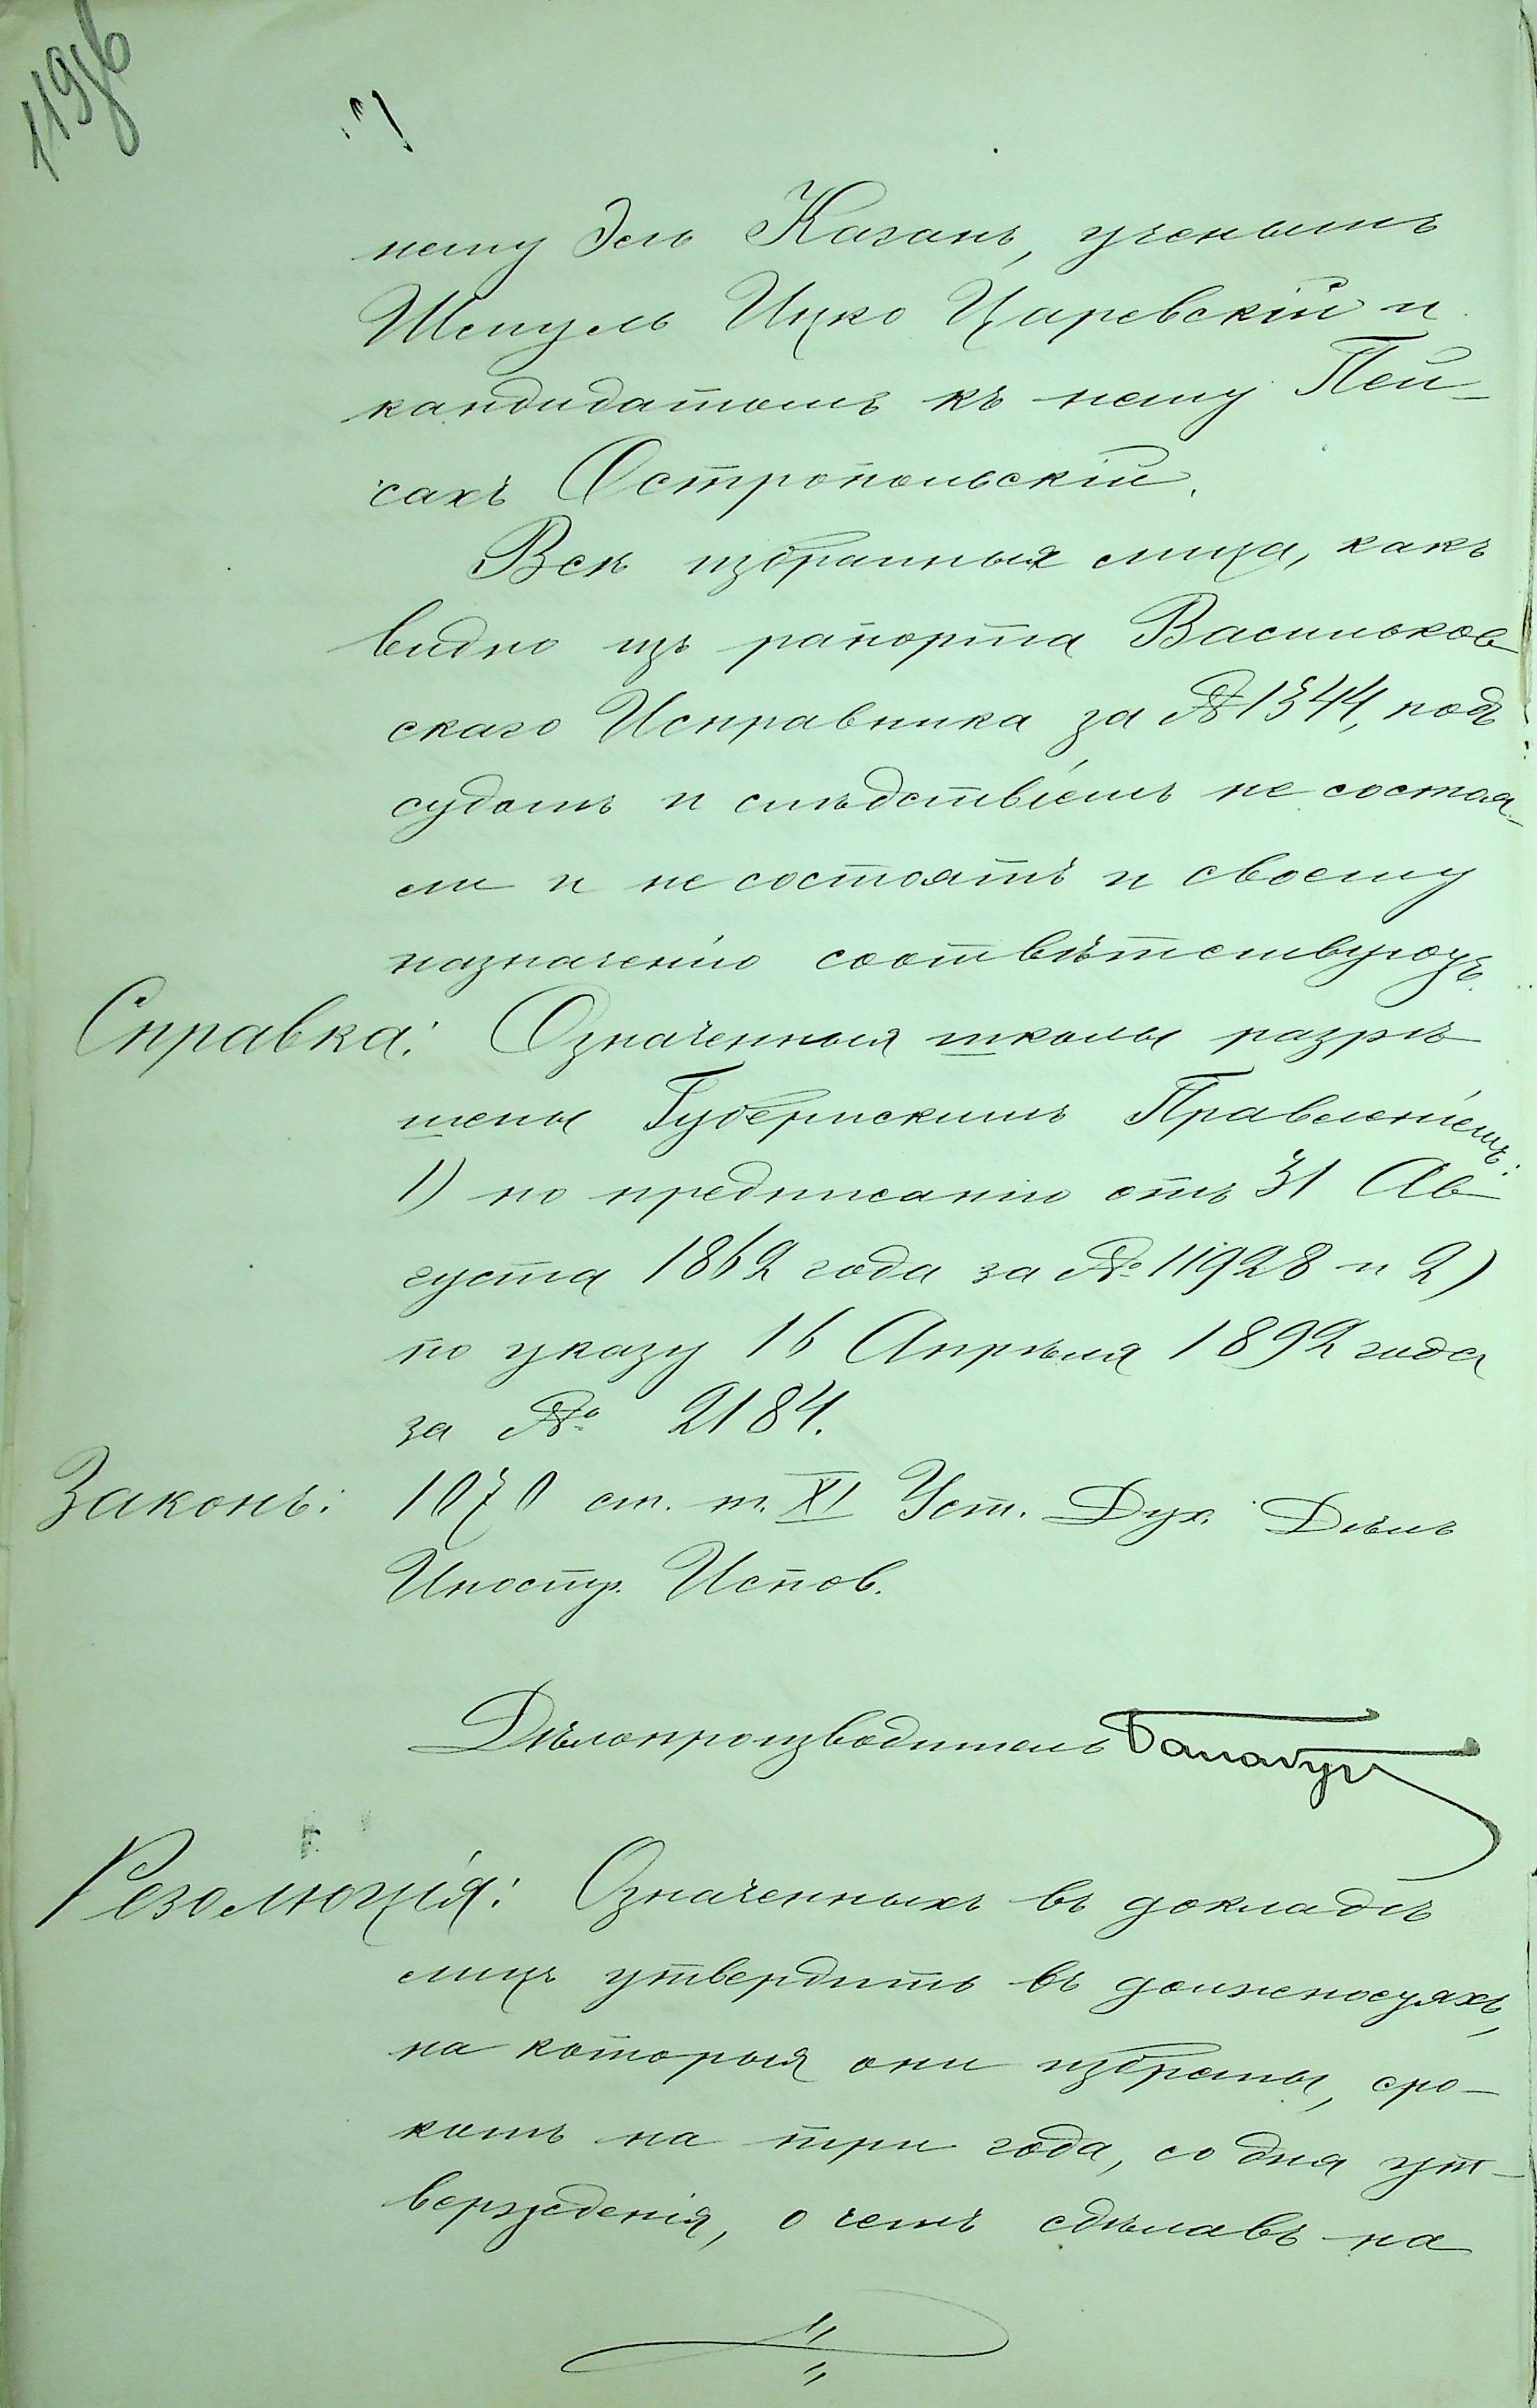 119об
нему Эль Каганъ, ученымъ
Шмуль Ицко Царевскій и
кандидатомъ къ нему Пей-
сахъ Остропольскій.
Всѣ избранныя лица, какъ
видно изъ рапорта Васильков-
скаго Исправника за № 1344, подъ
судомъ и слѣдствіемъ не состоя-
ли и не состоятъ и своему
назначенію соотвѣтствуютъ.
Справка: Означенныя школы разрѣ-
шены Губернскимъ Правленіемъ:
1) по предписанію отъ 31 Ав-
густа 1862 года за № 11928 и 2)
по указу 16 Апрѣля 1892 года
за № 2184.
Законъ: 1070 ст. т. XI Уст. Дух. Дѣлъ
Иностр. Испов.
Дѣлопроизводитель
Резолюція: Означенныхъ въ докладѣ
лицъ утвердить въ должностяхъ,
на которыя они избраны, сро-
комъ на три года, со дня ут-
вержденія, о чемъ сдѣлавъ на